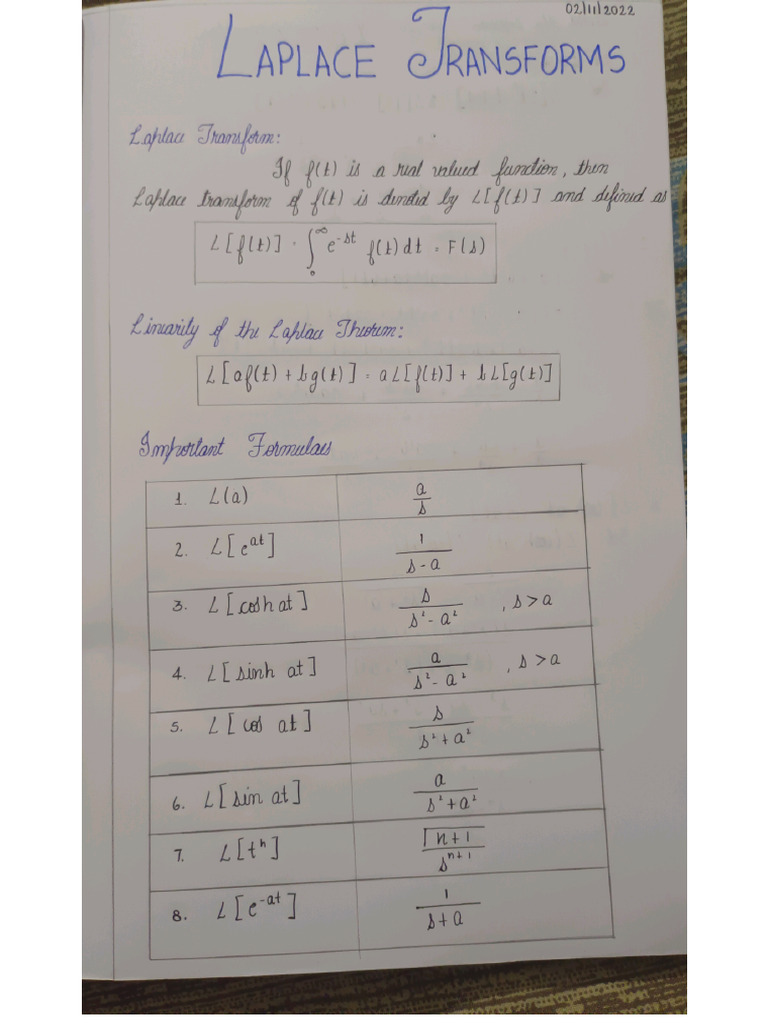 02/11/2022
LAPLACE TRANSFORMS
Laplace Transform:
If f(t) is a real valued function, then
Laplace transform of f(t) is denoted by L[f(t)] and defined as
L[f(t)] = ∫₀^∞ e^-st f(t) dt = F(s)
Linearity of the Laplace Theorem:
L[af(t) + bg(t)] = aL[f(t)] + bL[g(t)]
Important Formulaes
1. L(a) a/s
2. L[e^at] 1/(s-a)
3. L[cosh at] s/(s²-a²) , s>a
4. L[sinh at] a/(s²-a²) , s>a
5. L[cos at] s/(s²+a²)
6. L[sin at] a/(s²+a²)
7. L[t^n] Γn+1/s^n+1
8. L[e^-at] 1/(s+a)